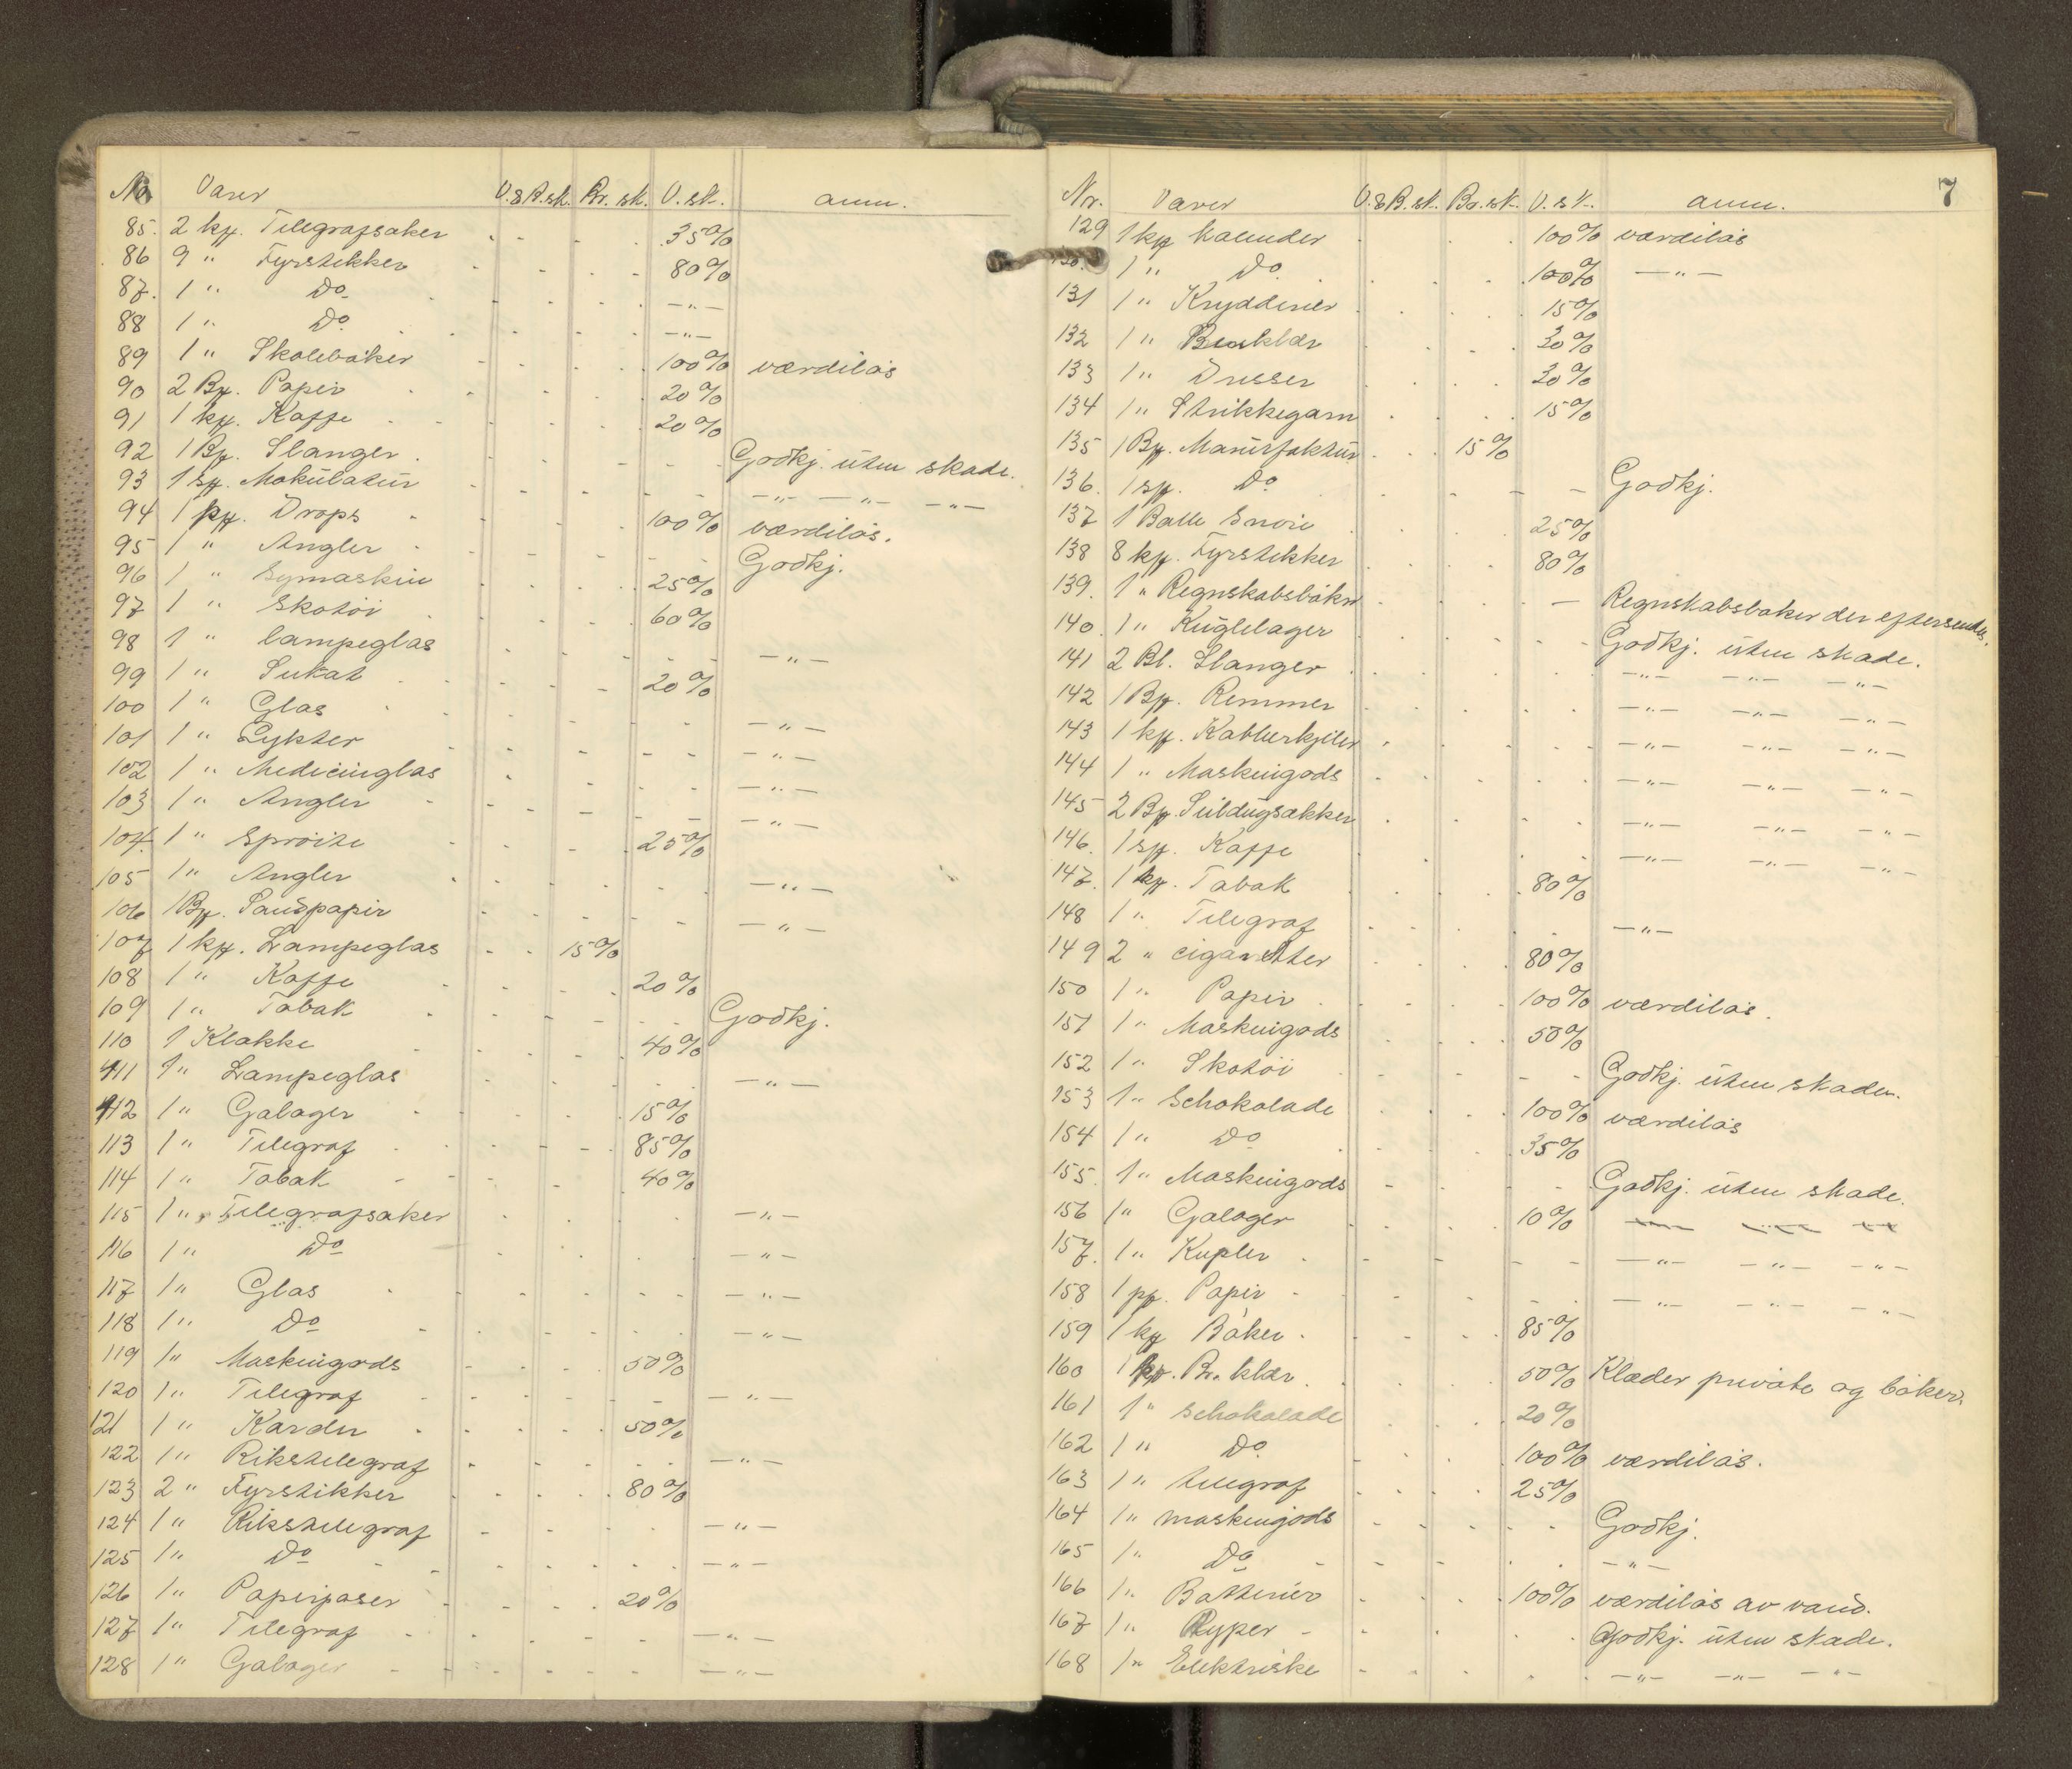 No Varer V.&B.sk. Br. sk. V. sk. anm.
85. 2 kp. Telegrafsaker 35%
86 9 " Fyrstikker 80%
87. 1 " Do — " —
88 1 " Do — " —
89 1 " Skolebøker 100% værdiløs
90 2 Bp. Papir 20%
91 1 kp. Kaffe 20%
92 1 Bp. Slanger Godkj. uten skade.
93 1 sp. Mokulatur — " — — " — — " —
94 1 kp. Drops 100% værdiløs.
95 1 " Angler Godkj.
96 1 " Symaskin 25%
97 1 " Skotøi 60%
98 1 " Lampeglas — " —
99 1 " Sukat 20%
100 1 " Glas — " —
101 1 " Lykter — " —
102 1 " Medicinglas — " —
103 1 " Angler — " —
104 1 " Sprøite 25%
105 1 " Angler — " —
106 1 Bp. Sandpapir — " —
107 1 kp. Lampeglas 15%
108 1 " Kaffe 20%
109 1 " Tabak Godkj.
110 1 Klokke 40%
111 1 " Lampeglas — " —
112 1 " Galoger 15%
113 1 " Telegraf 85%
114 1 " Tabak 40%
115 1 " Telegrafsaker — " —
116 1 " Do — " —
117 1 " Glas — " —
118 1 " Do — " —
119 1 " Maskingods 50%
120 1 " Telegraf — " —
121 1 " Karder 50%
122 1 " Rikstelegraf — " —
123 2 " Fyrstikker 80%
124 1 " Rikstelegraf — " —
125 1 " Do — " —
126 1 " Papirposer 20%
127 1 " Telegraf — " —
128 1 " Galoger — " —
7
Nr. Varer V.&B.sk. Br.sk. V.sk. anm.
129 1 kp Kalender 100% værdiløs
130. 1 " Do 100% — " —
131 1 " Krydderier 15%
132 1 " Benklær 30%
133 1 " Dresser 30%
134 1 " Strikkegarn 15%
135 1 Bp. Manufaktur 15%
136. 1 sp. Do Godkj.
137 1 Balle Snøre 25%
138 8 kp. Fyrstikker 80%
139. 1 " Regnskabsbøker — Regnskabsbøker der eftersendes.
140. 1 " Kuglelager Godkj. uten skade.
141 2 Bl. Slanger — " — — " — — " —
142 1 Bp. Remmer — " — — " — — " —
143 1 kp. Kabberkjeler — " — — " — — " —
144 1 " Maskingods — " — — " — — " —
145 2 Bp. Seildugsækker — " — — " — — " —
146. 1 sp. Kaffe — " — — " — — " —
147. 1 kp. Tabak 80%
148 1 " Telegraf — " —
149 2 " cigaretter 80%
150 1 " Papir 100% værdiløs.
151 1 " Maskingods 50%
152 1 " Skotøi Godkj. uten skade.
153 1 " Schokolade 100% værdiløs
154 1 " Do 35%
155. 1 " Maskingods Godkj. uten skade.
156 1 " Galoger 10%
157. 1 " Kupler — " — — " — — " —
158 1 pp. Papir — " — — " — — " —
159 1 kp Bøker 85%
160 1 kp. Br. klær 50% Klæder private og bøker.
161 1 " Schokolade 20%
162 1 " Do 100% værdiløs.
163 1 " telegraf 25%
164 1 " maskingods Godkj.
165 1 " Do — " —
166 1 " Batterier 100% værdiløs av vand.
167 1 " Ryper Godkj. uten skade.
168 1 " Elektriske — " — — " — — " —